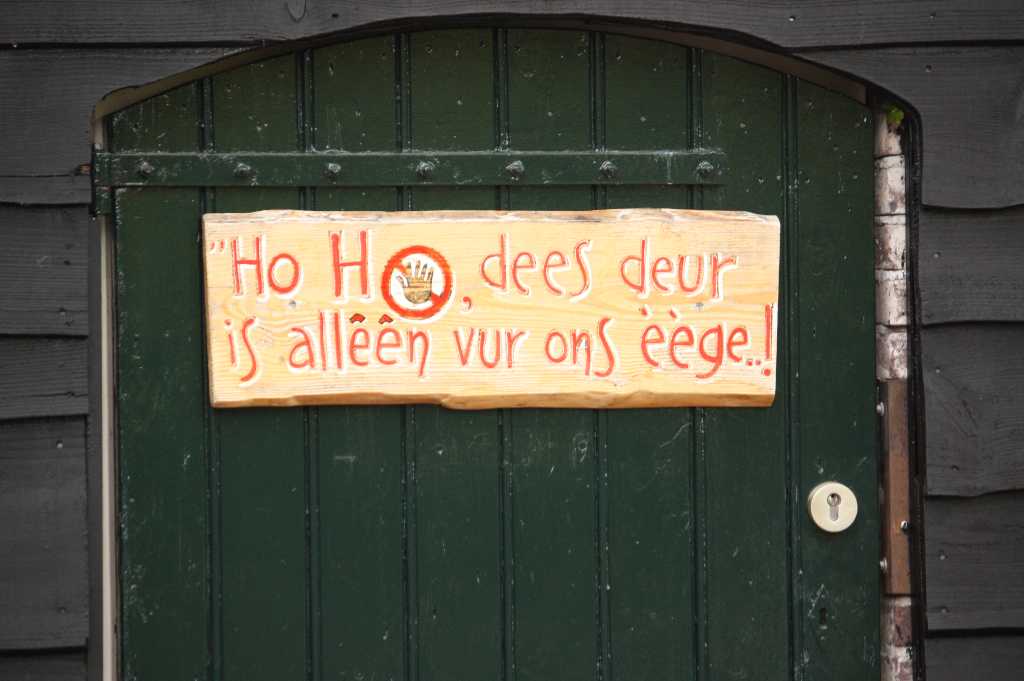 "Ho Ho, dees deur
is allëën vur ons ëège..!